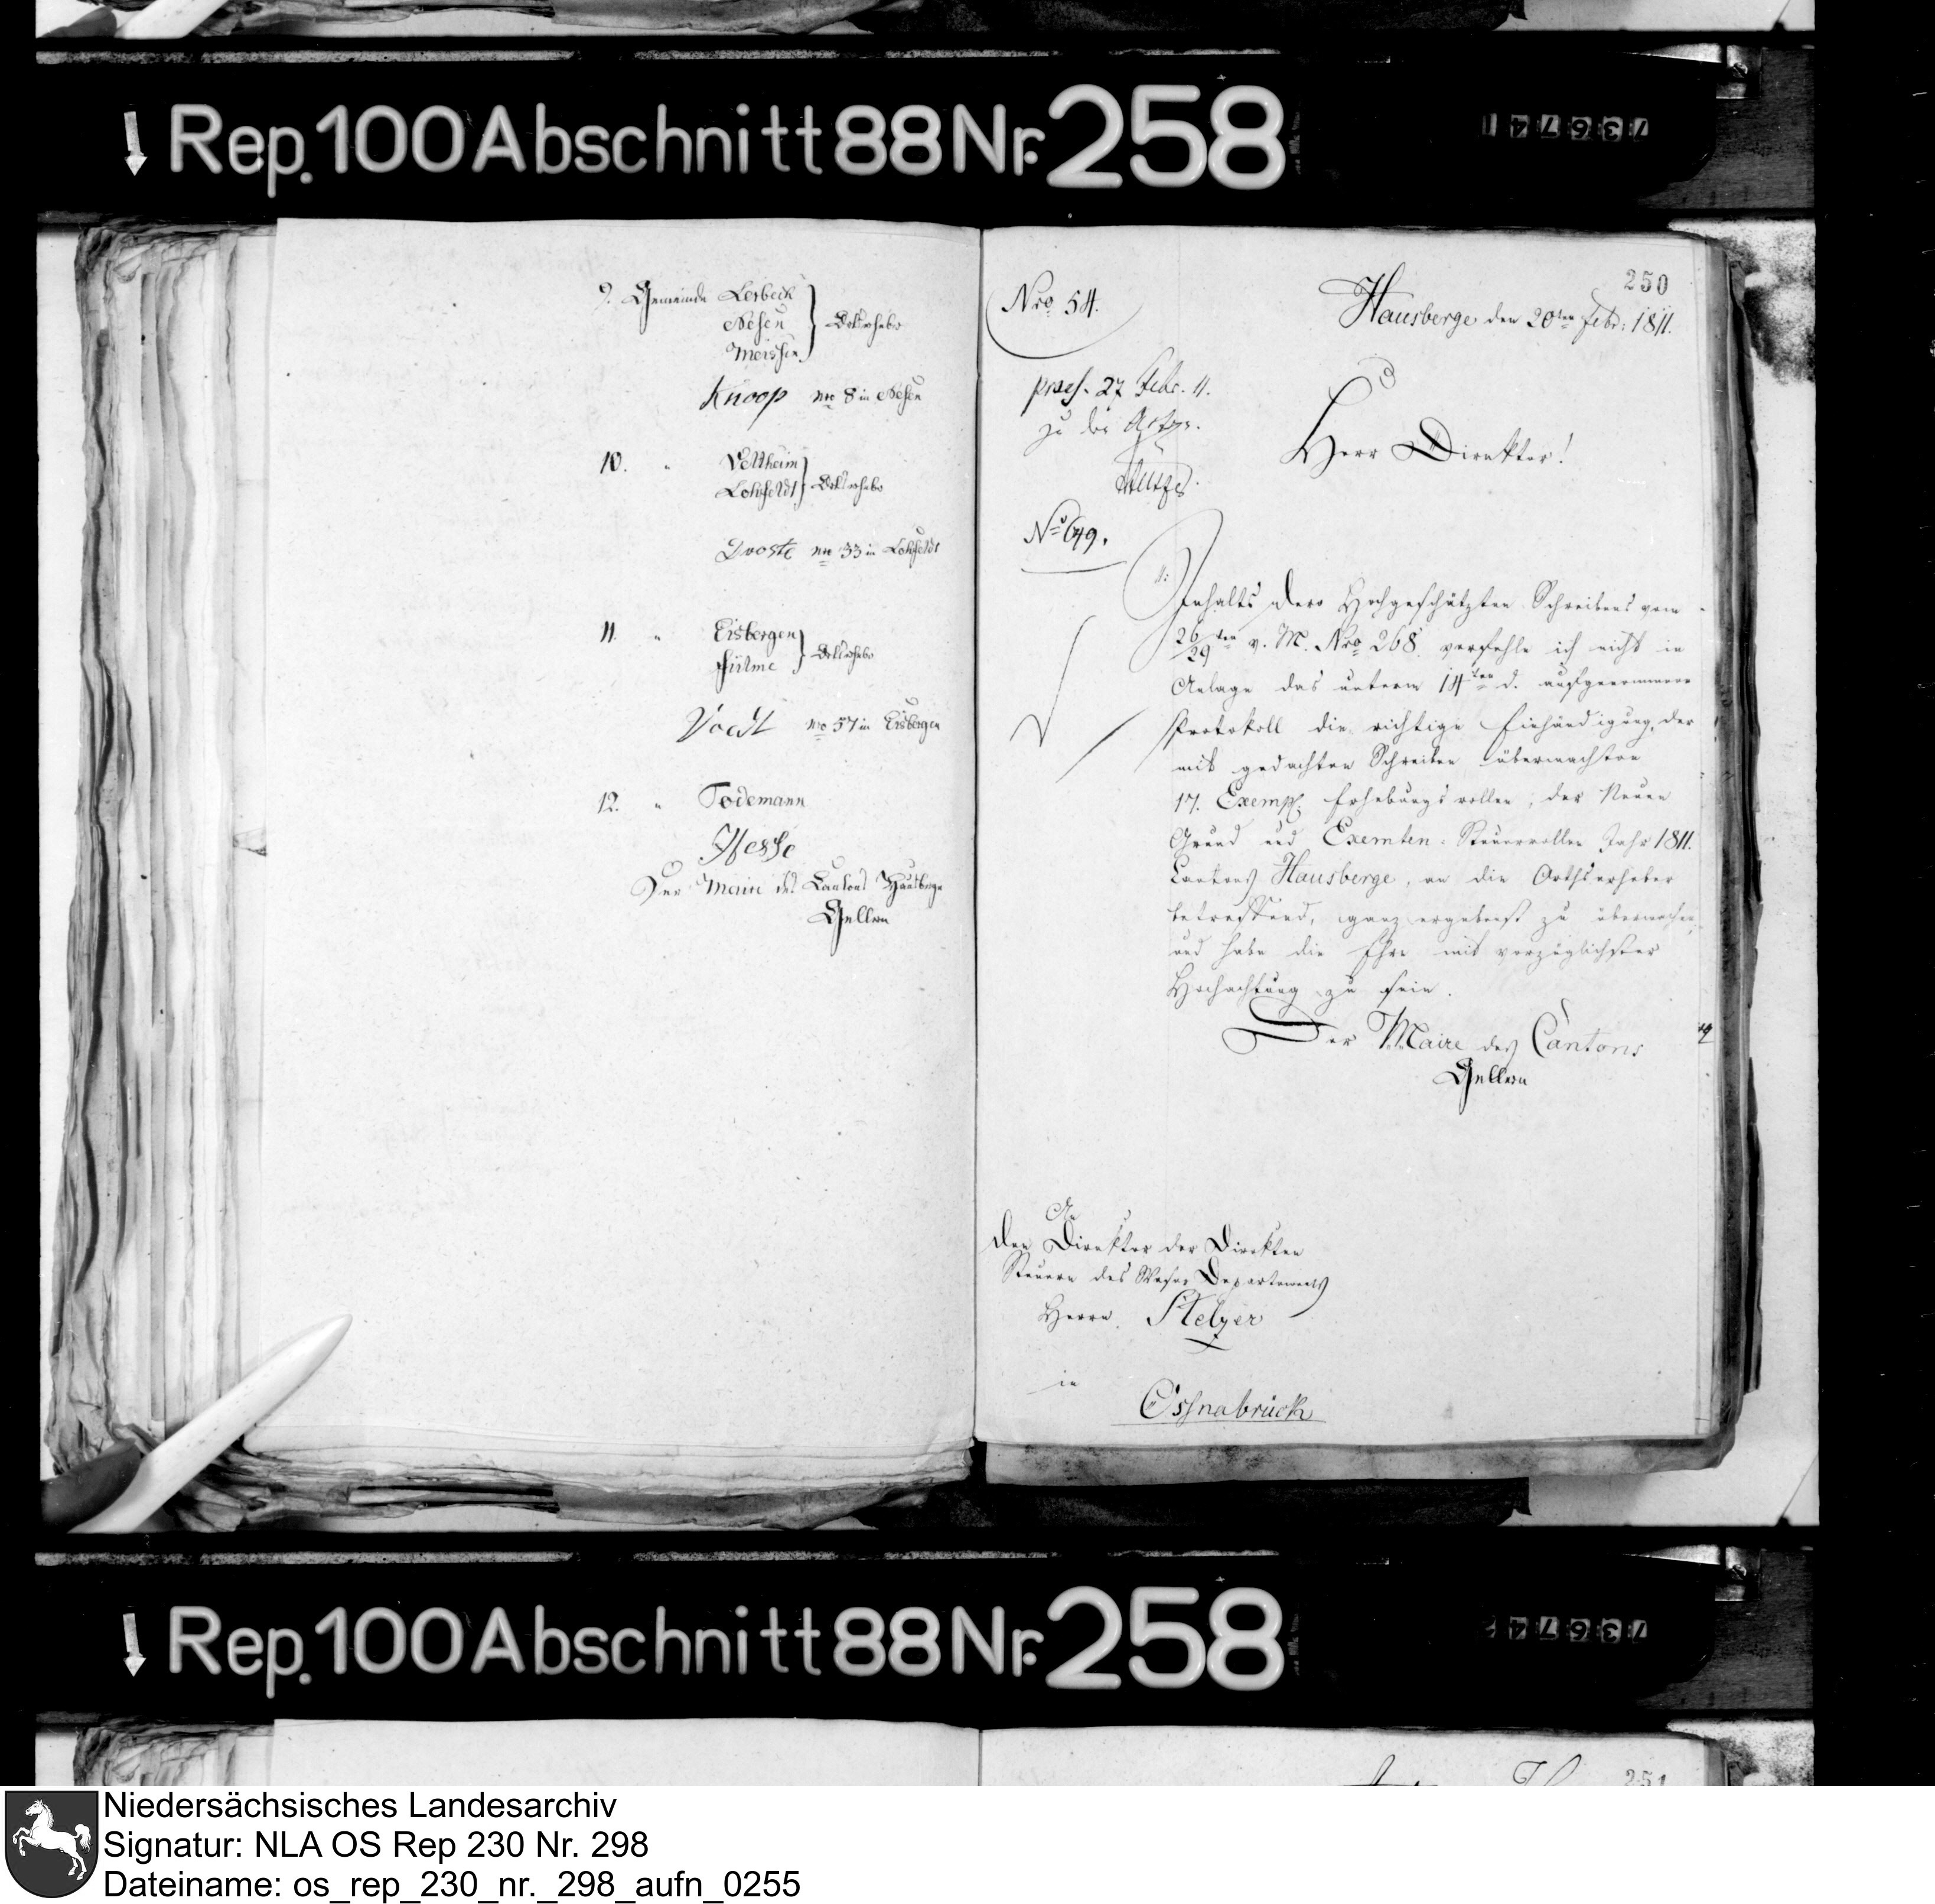 Rep. 100 Abschnitt 88 Nr. 258
73674
9. Gemeinde Lerbeck
Nesen
Meissen
Ortserheber
Knoop nro 8 in Nesen
10. " Veltheim
Lohfeldt
Ortserheber
Droste nro 33 in Lohfeldt
11. " Eisbergen
Fülme
Ortserheber
Vocht nro 57 in Eisbergen
12. " Todemann
Hesse
Der Maire des Cantons Hausberge
Gellern
250
Nro 54.
Hausberge den 20ten Febr: 1811.
praes. 27 Febr. 11.
zu den Acten.
Herr Direktor!
No 649.
Inhalts dero Hochgeschätzten Schreibens vom
26/29ten v. M. Nro 268. verfehle ich nicht in
Anlage das unterm 14ten d. aufgenommene
Protokoll die richtige Einhändigung, der
mit gedachten Schreiben übermachten
17. Exempl. Erhebungsrollen, der Neuen
Grund und Exemten-Steuerrollen Jahr 1811.
Cantons Hausberge, an die Ortserheber
betreffend, ganz ergebenst zu übermachen,
und habe die Ehre mit vorzüglichster
Hochachtung zu sein.
Der Maire des Cantons
Gellern
An
den Direktor der Direkten
Steuern des Weser Departements
Herrn Stelzer
in
Ossnabrück
Rep. 100 Abschnitt 88 Nr. 258
73674
251
Niedersächsisches Landesarchiv
Signatur: NLA OS Rep 230 Nr. 298
Dateiname: os_rep_230_nr._298_aufn_0255